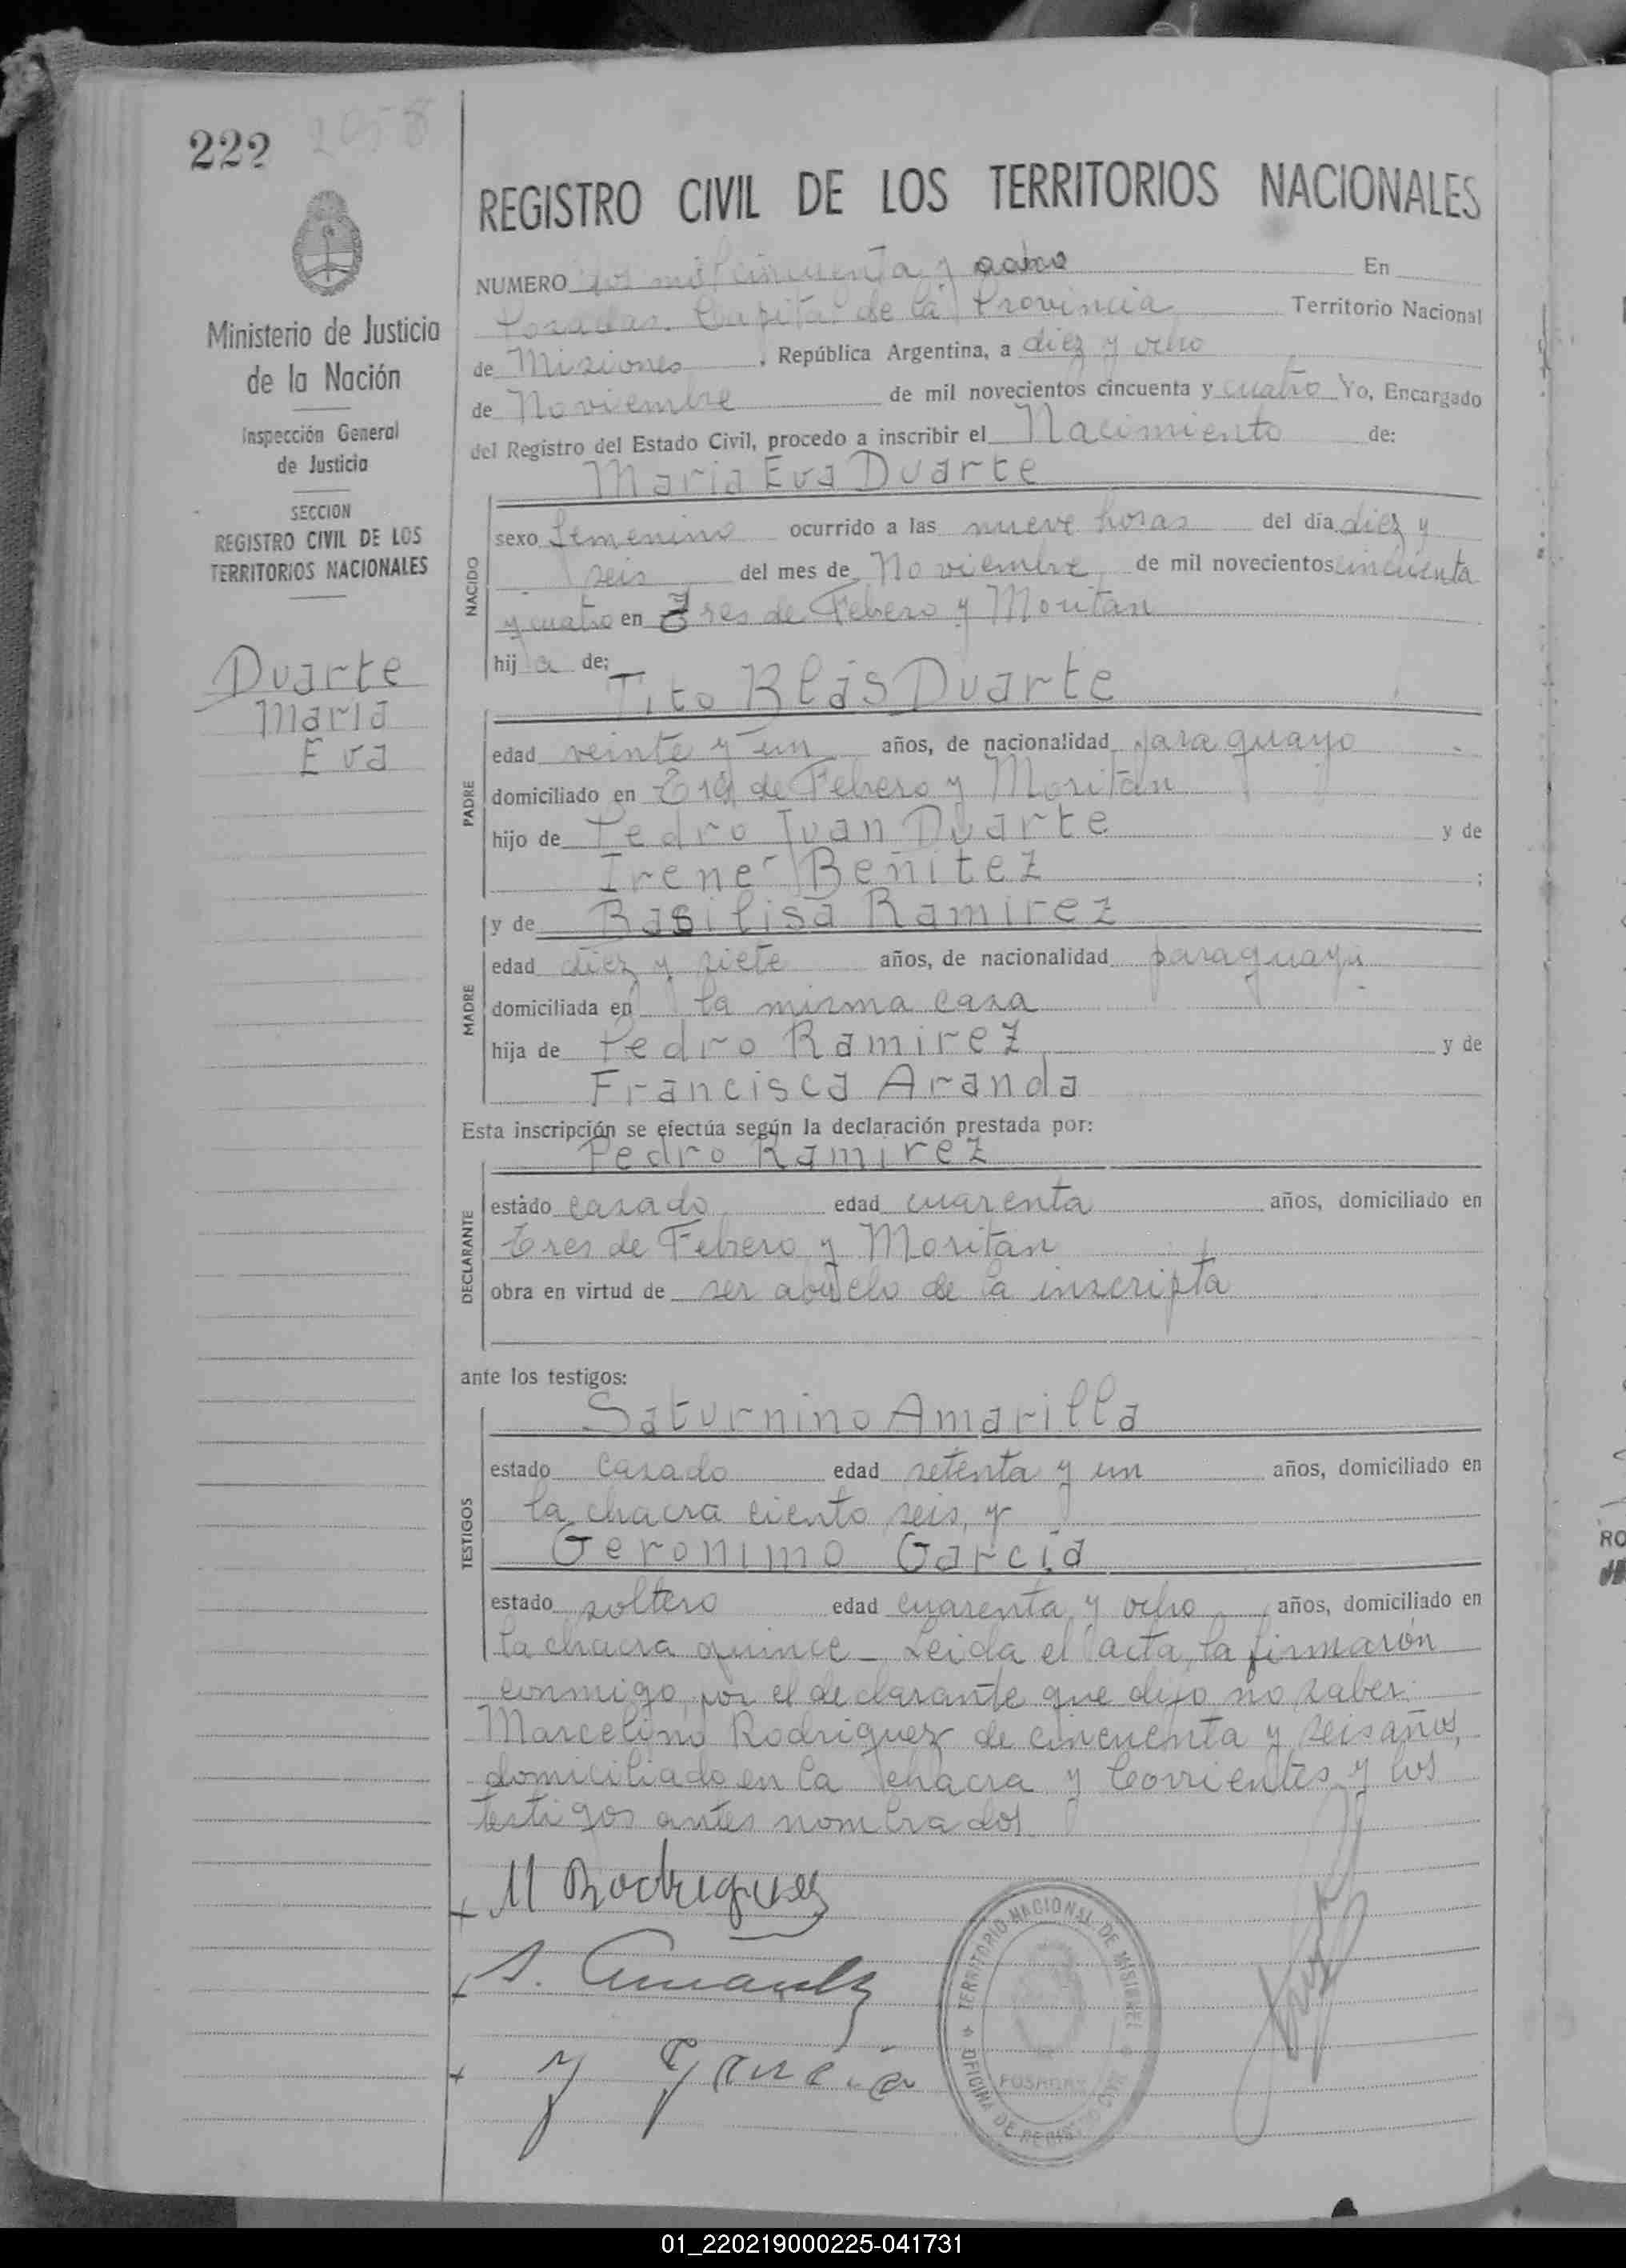 222 2058
REGISTRO CIVIL DE LOS TERRITORIOS NACIONALES
Ministerio de Justicia
de la Nación
Inspección General
de Justicia
SECCION
REGISTRO CIVIL DE LOS
TERRITORIOS NACIONALES
Duarte
Maria
Eva
NUMERO dos mil cincuenta y ocho En
Posadas. Capital de la Provincia Territorio Nacional
de Misiones , República Argentina, a diez y ocho
de Noviembre de mil novecientos cincuenta y cuatro Yo, Encargado
del Registro del Estado Civil, procedo a inscribir el Nacimiento de:
Maria Eva Duarte
NACIDO
sexo femenino ocurrido a las nueve horas del día diez y
seis del mes de Noviembre de mil novecientos cincuenta
y cuatro en Tres de Febrero y Moritan
hij a de:
Tito Blás Duarte
PADRE
edad veinte y un años, de nacionalidad paraguayo
domiciliado en Tres de Febrero y Moritan
hijo de Pedro Juan Duarte y de
Irene Benitez ;
y de Basilisa Ramirez
MADRE
edad diez y siete años, de nacionalidad paraguaya
domiciliada en la misma casa
hija de Pedro Ramirez y de
Francisca Aranda
Esta inscripción se efectúa según la declaración prestada por:
Pedro Ramirez
DECLARANTE
estado casado edad cuarenta años, domiciliado en
Tres de Febrero y Moritan
obra en virtud de ser abuelo de la inscripta
ante los testigos:
Saturnino Amarilla
TESTIGOS
estado casado edad setenta y un años, domiciliado en
la chacra ciento seis, y
Geronimo Garcia
estado soltero edad cuarenta y ocho años, domiciliado en
la chacra quince - Leida el acta, la firmaron
conmigo, por el declarante que dijo no saber:
Marcelino Rodriguez de cincuenta y seis años,
domiciliado en la chacra y Corrientes y los
testigos antes nombrados
M Rodriguez
S. Amarilla
J Garcia
TERRITORIO NACIONAL DE MISIONES
POSADAS
OFICINA DE REGISTRO CIVIL
RO
01_220219000225-041731